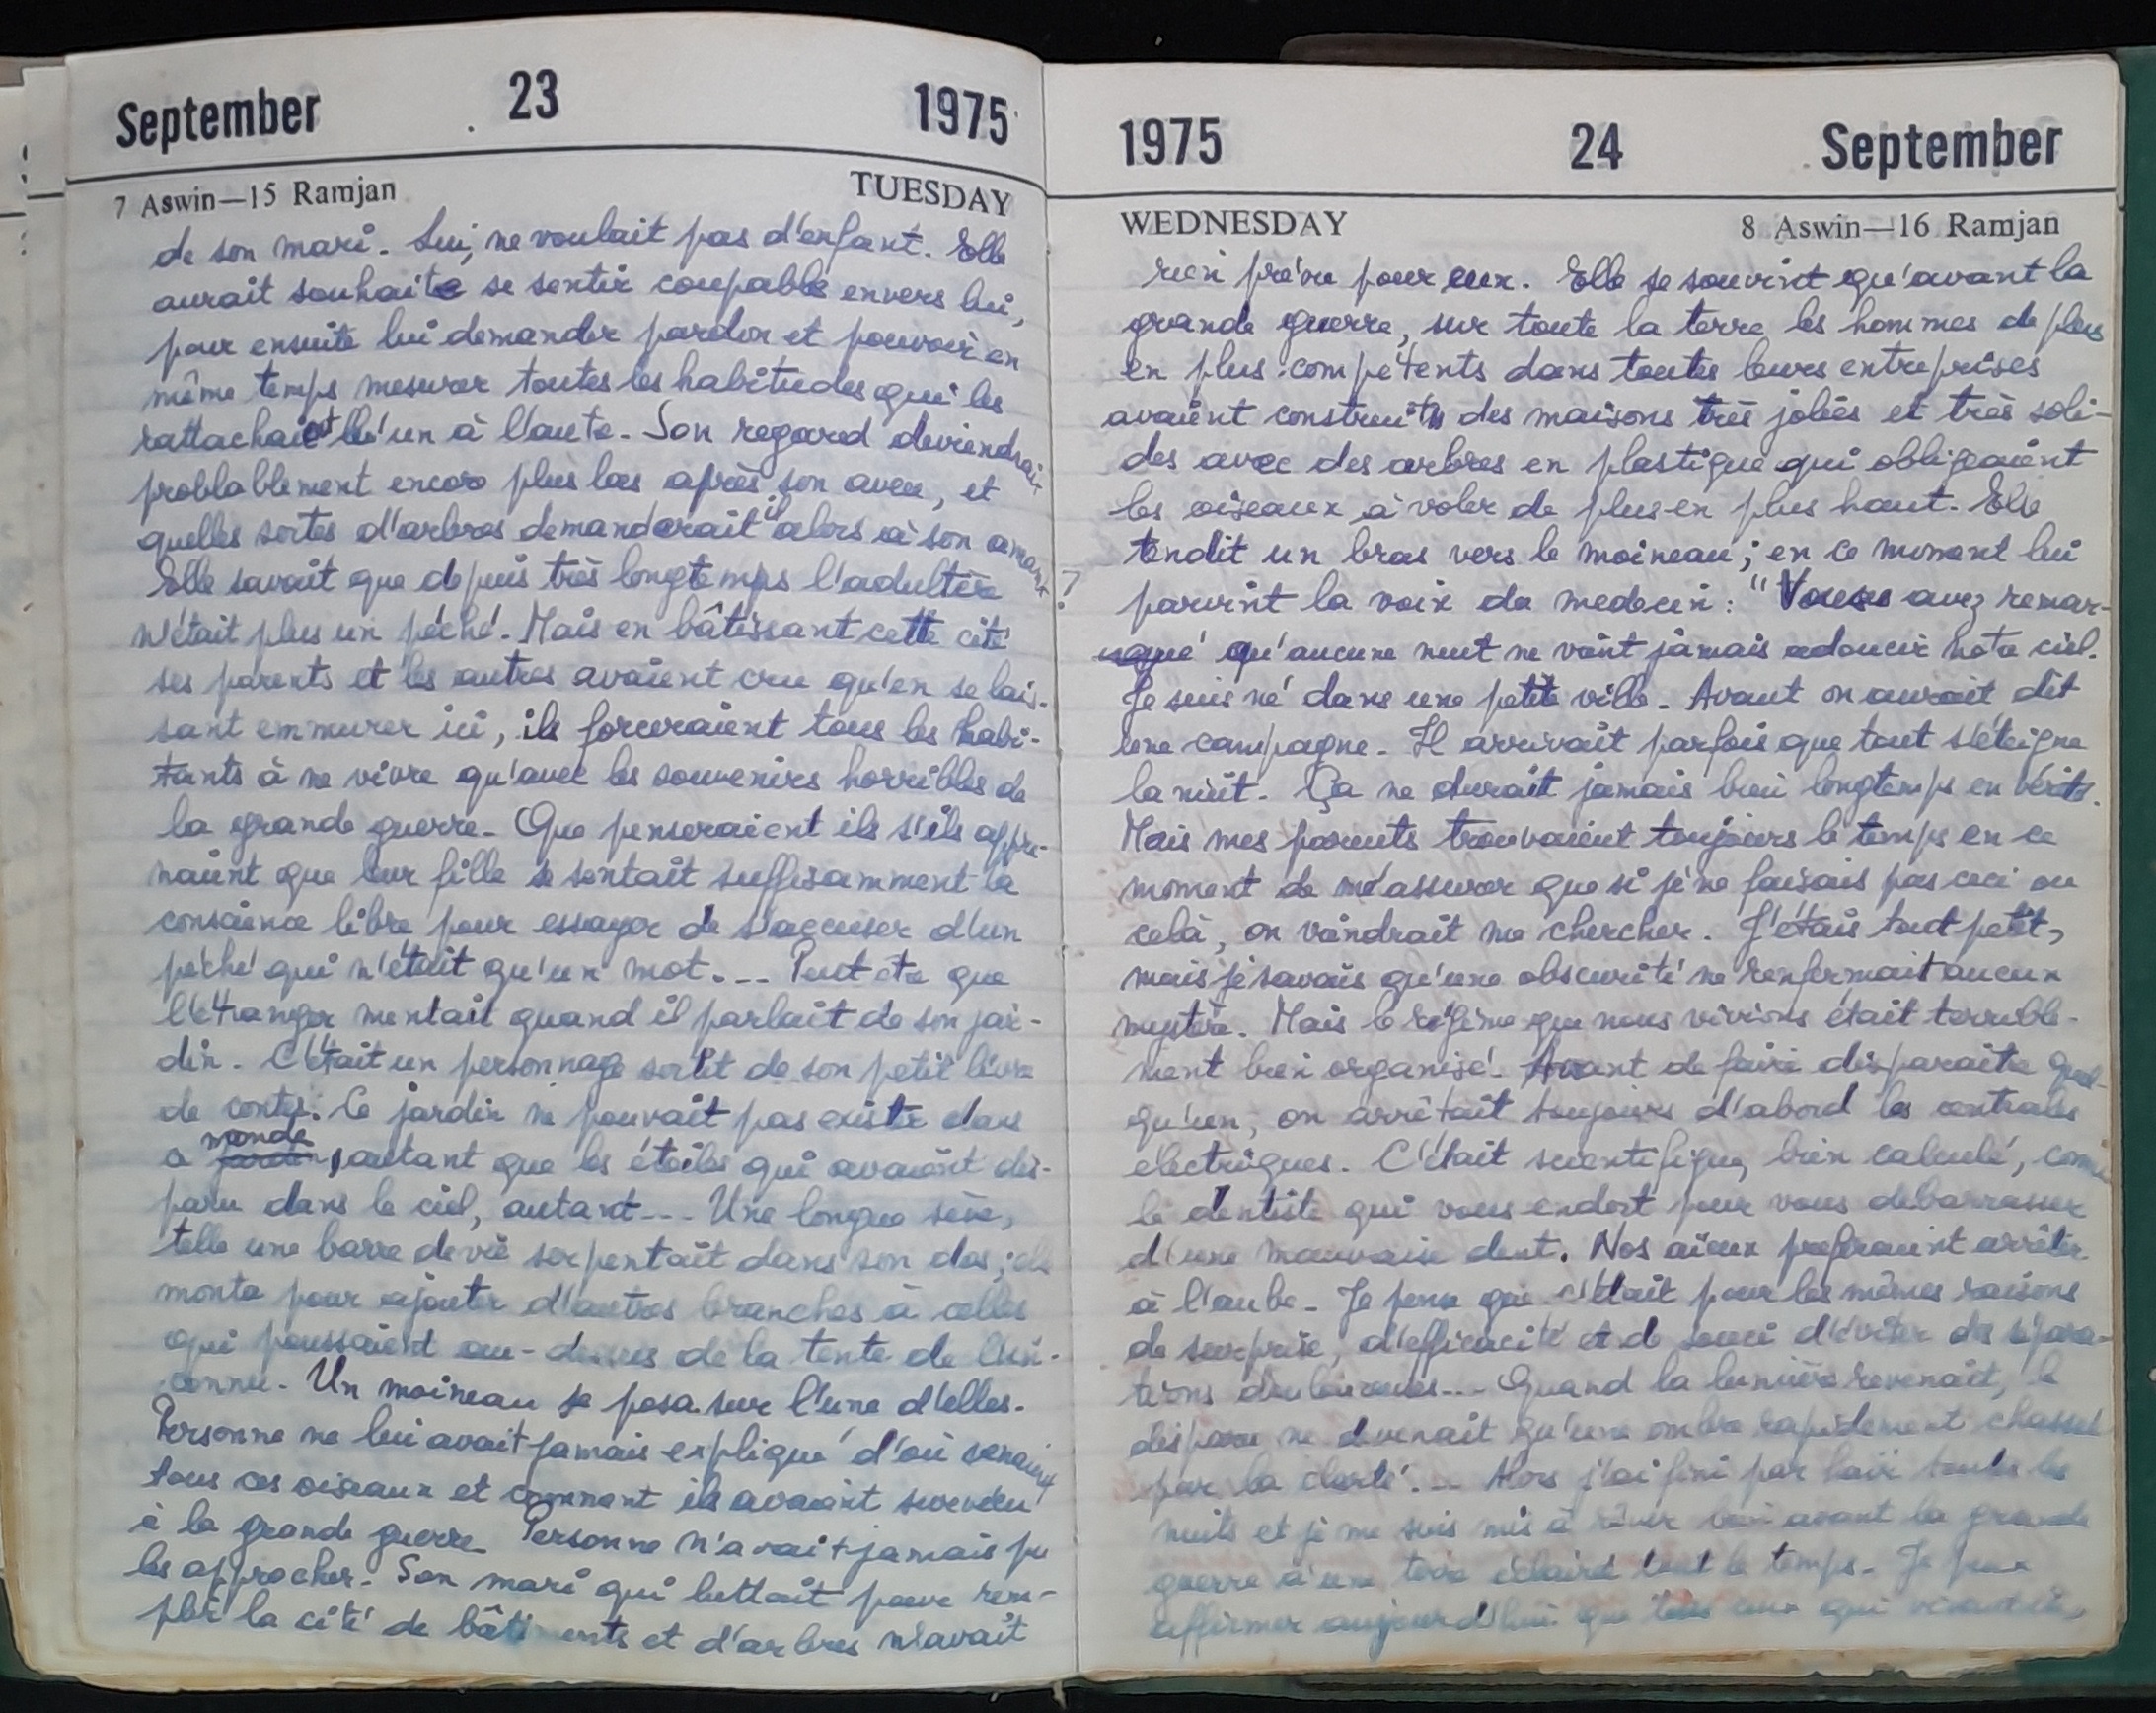 September 23 1975
7 Aswin—15 Ramjan TUESDAY
de son mari. Lui, ne voulait pas d'enfant. Elle
aurait souhaité se sentir coupable envers lui,
pour ensuite lui demander pardon et pouvoir en
même temps mesurer toutes les habitudes qui les
rattachaient l'un à l'autre. Son regard deviendrait
problablement encore plus las après son aveu, et
quelles sortes d'arbres demanderait il alors à son amant ?
Elle savait que depuis très longtemps l'adultère
n'était plus un péché. Mais en bâtissant cette cité
ses parents et les autres avaient cru qu'en se lais-
sant emmurer ici, ils forceraient tous les habi-
tants à ne vivre qu'avec les souvenirs horribles de
la grande guerre. Que penseraient ils s'ils appre-
naient que leur fille se sentait suffisamment la
conscience libre pour essayer de s'accuser d'un
péché qui n'était qu'un mot... Peut être que
l'étranger mentait quand il parlait de son jar-
din. C'était un personnage sortit de son petit livre
de contes. Ce jardin ne pouvait pas exister dans
ce monde, autant que les étoiles qui avaient dis-
paru dans le ciel, autant... Une longue sève,
telle une barre de vie serpentait dans son dos ; elle
monta pour ajouter d'autres branches à celles
qui poussaient au-dessus de la tente de l'in-
connu. Un moineau se posa sur l'une d'elles.
Personne ne lui avait jamais expliqué d'où venaient
tous ces oiseaux et comment ils avaient survécu
à la grande guerre. Personne n'avait jamais pu
les approcher. Son mari qui luttait pour rem-
plir la cité de bâtiments et d'arbres n'avait
1975 24 September
WEDNESDAY 8 Aswin—16 Ramjan
rien prévu pour eux. Elle se souvint qu'avant la
grande guerre, sur toute la terre les hommes de plus
en plus compétents dans toutes leurs entreprises
avaient construits des maisons très jolies et très soli-
des avec des arbres en plastique qui obligeaient
les oiseaux à voler de plus en plus haut. Elle
tendit un bras vers le moineau ; en ce moment lui
parvint la voix du medecin : "Vous avez remar-
qué qu'aucune nuit ne vient jamais adoucir notre ciel.
Je suis né dans une petite ville. Avant on aurait dit
une campagne. Il arrivait parfois que tout s'éteigne
la nuit. Ça ne durait jamais bien longtemps en vérité.
Mais mes parents trouvaient toujours le temps en ce
moment de m'assurer que si je ne faisais pas ceci ou
celà, on viendrait me chercher. J'étais tout petit,
mais je savais qu'une obscurité ne renfermait aucun
mystère. Mais le régime que nous vivions était terrible-
ment bien organisé. Avant de faire disparaitre quel-
qu'un, on arrêtait toujours d'abord les centrales
électriques. C'était scientifique, bien calculé, comme
le dentiste qui vous endort pour vous debarrasser
d'une mauvaise dent. Nos aïeux preferaient arrêter
à l'aube. Je pense que c'était pour les mêmes raisons
de surprise, d'efficacité et de souci d'éviter des sépara-
tions douloureuses... Quand la lumière revenait, le
disparu ne devenait qu'une ombre rapidement chassée
par la clarté... Alors j'ai fini par haïr toutes les
nuits et je me suis mis à rêver bien avant la grande
guerre à une terre éclairée tout le temps. Je peux
affirmer aujourd'hui que tous ceux qui